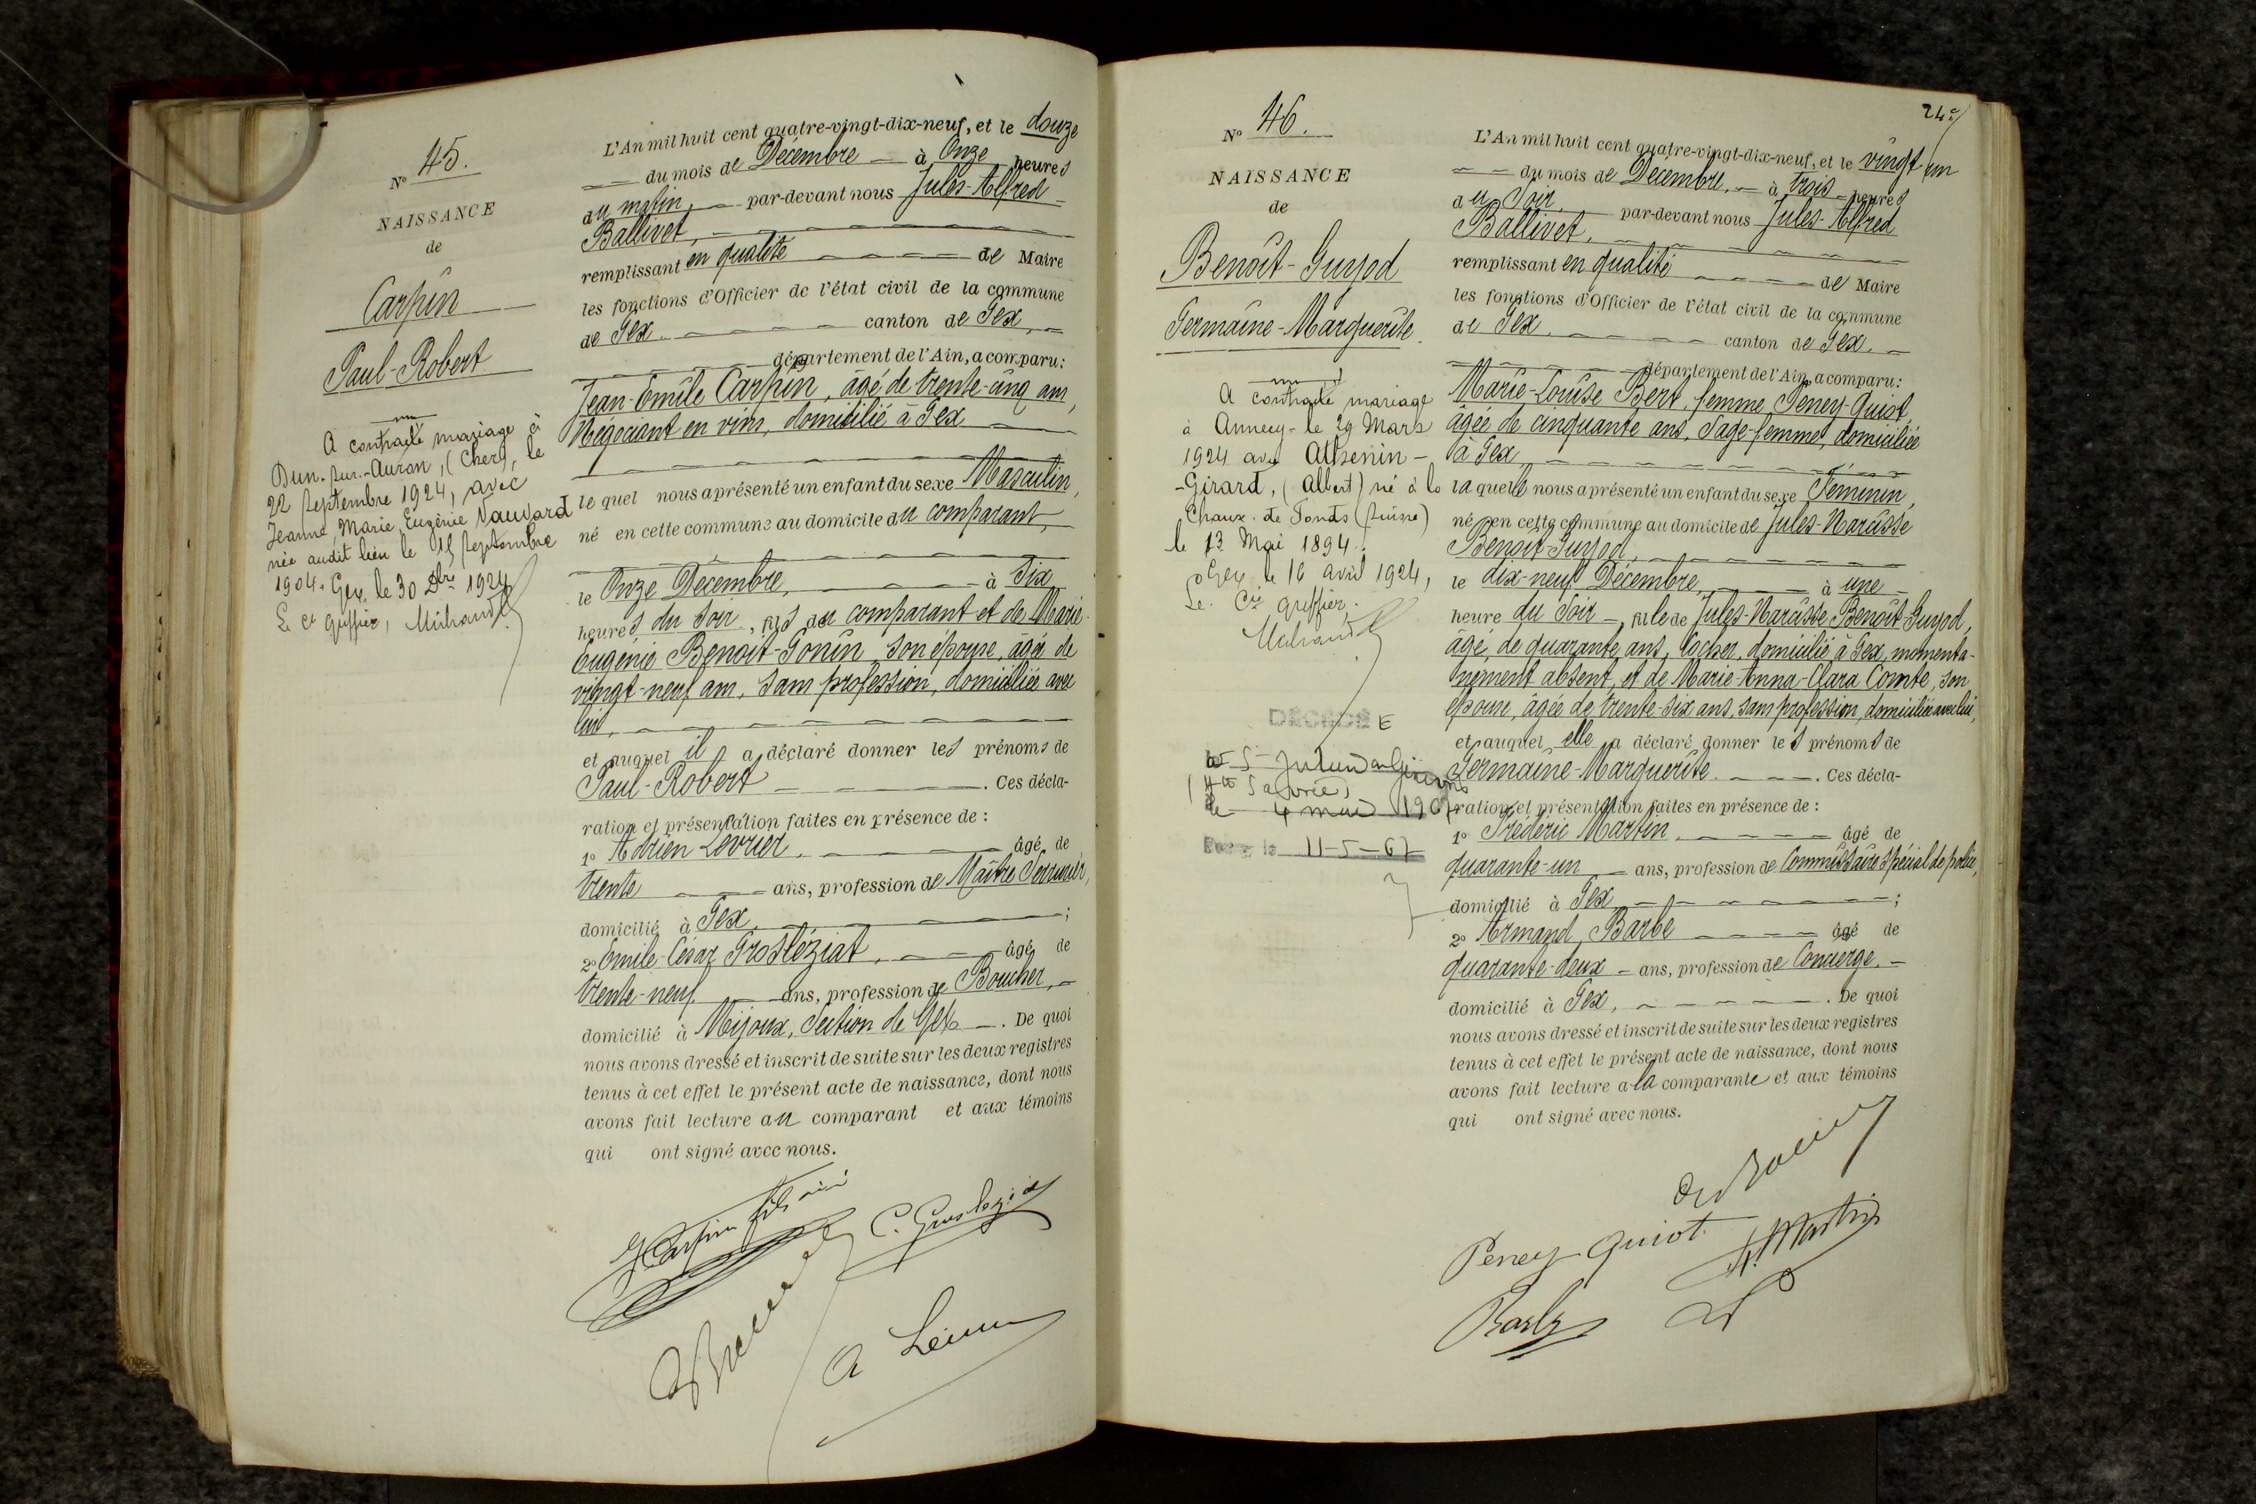 N° 45.
NAISSANCE
de
Carpin
Paul-Robert
A contracté mariage à
Dun-sur-Auron, (Cher), le
22 septembre 1924, avec
Jeanne, Marie, Eugénie Nauvard
née audit lieu le 15 septembre
1904. Gex, le 30 Sbre 1924
Le Cis greffier,
L'An mil huit cent quatre-vingt-dix-neuf, et le douze
du mois de Décembre à Onze heures
du matin, par-devant nous Jules-Alfred
Ballivet,
remplissant en qualité de Maire
les fonctions d'Officier de l'état civil de la commune
de Gex canton de Gex,
département de l'Ain, a comparu:
Jean-Emile Carpin, âgé de trente-cinq ans,
Négociant en vins, domicilié à Gex
le quel nous a présenté un enfant du sexe Masculin,
né en cette commune au domicile du comparant,
le Onze Décembre, à Six
heures du soir, fils du comparant et de Marie
Eugénie Benoit-Gonin son épouse, âgée de
vingt-neuf ans, sans profession, domiciliée avec
lui,
et auquel il a déclaré donner les prénoms de
Paul-Robert. Ces décla-
ration et présentation faites en présence de :
1° Adrien Levrier, âgé de
trente ans, profession de Maître Serrurier,
domicilié à Gex, ;
2° Emile-César Grosléziat, âgé de
trente-neuf ans, profession de Boucher,
domicilié à Mijoux, Section de Gex. De quoi
nous avons dressé et inscrit de suite sur les deux registres
tenus à cet effet le présent acte de naissance, dont nous
avons fait lecture au comparant et aux témoins
qui ont signé avec nous.
J Carpin fils aîné
C. Grosleziat
24e
N° 46.
NAISSANCE
de
Benoît-Guyod
Germaine-Marguerite.
A contracté mariage
à Annecy le 29 Mars
1924 avec Althenin-
-Girard, (Albert) né à la
Chaux-de-Fonds (Suisse)
le 13 Mai 1894.
Gex, le 16 avril 1924,
Le Cis greffier.
DÉCÉDÉE
(Hte Savoie)
le 4 mai 1967
11-5-67
L'An mil huit cent quatre-vingt-dix-neuf, et le vingt un
du mois de Décembre, à trois heures
du Soir, par-devant nous Jules-Alfred
Ballivet,
remplissant en qualité de Maire
les fonctions d'Officier de l'état civil de la commune
de Gex canton de Gex.
département de l'Ain, a comparu:
Marie-Louise Bert, femme Peney-Quiot,
âgée de cinquante ans, Sage-femme, domiciliée
à Gex,
la quelle nous a présenté un enfant du sexe Féminin,
né en cette commune au domicile de Jules-Narcisse
Benoit-Guyod,
le dix-neuf Décembre, à une
heure du Soir, fille de Jules-Narcisse Benoît-Guyod,
âgé de quarante ans, Cocher, domicilié à Gex, momenta-
nément absent, et de Marie-Anna-Clara Comte, son
épouse, âgée de trente-six ans, sans profession, domiciliée avec lui,
et auquel elle a déclaré donner les prénoms de
Germaine-Marguerite. Ces décla-
ration et présentation faites en présence de :
1° Frédéric Martin, âgé de
quarante-un ans, profession de Commissaire spécial de police,
domicilié à Gex, ;
2° Armand Barbe âgé de
quarante-deux ans, profession de Concierge.
domicilié à Gex, . De quoi
nous avons dressé et inscrit de suite sur les deux registres
tenus à cet effet le présent acte de naissance, dont nous
avons fait lecture a la comparante et aux témoins
qui ont signé avec nous.
Peney-Quiot.
F. Martin